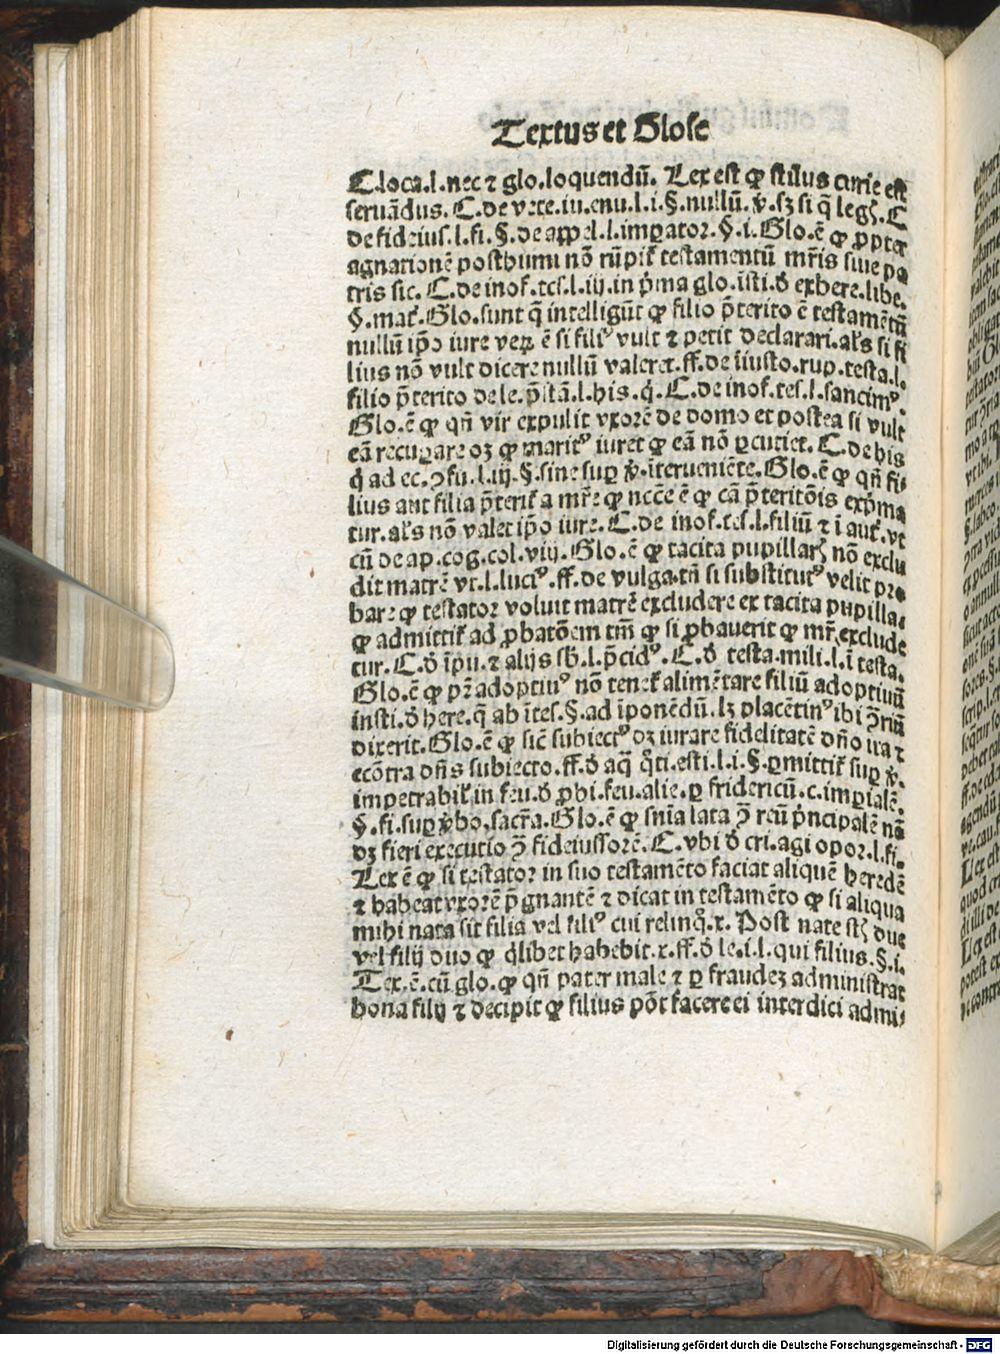 Textus et Glose
C.loca.l.nec ⁊ glo.loquendũ. Lex est ꝙ stilus curie est
seruãdus. C. de vete.iu.enu.l.i.§.nullũ.ꝟ.sꝫ si q̃ legꝭ. C
de fideius.l.fi.§.de appel.l.imꝑator.§.i.Glo.ẽ ꝙ ꝓpter
agnationẽ posthumi nõ rũpit᷑ testamentũ mr̃is siue pa
tris sic. C.de inof.tes.l.iij.in p̃ma glo.ĩsti.ð exhere.libe.
§.mat᷑.Glo.sunt q̃ intelligũt ꝙ filio p̃terito ẽ testamẽtũ
nullũ ip̃o iure veꝝ ẽ si filiꝰ vult ⁊ petit declarari.al̃s si fi
lius nõ vult dicere nullũ valeret.ff.de iniusto.rup.testa.l.
filio p̃terito de le.p̃stã.l.his.q̃. C.de inof.tes.l.sancimꝰ.
Glo.ẽ ꝙ qñ vir expulit vxorẽ de domo et postea si vult
eã recuꝑare oꝫ ꝙ maritꝰ iuret ꝙ eã nõ ꝑcutiet. C.de his
q̃ ad ec.ↄfu.l.iij.§.sine suꝑ ꝟ.ĩterueniẽte.Glo.ẽ ꝙ qñ fi⸗
lius aut filia p̃terit᷑ a mr̃e ꝙ necc̃e ẽ ꝙ cã p̃teritõis exp̃ma
tur.al̃s nõ valet ip̃o iure. C.de inof.tes.l.filiũ ⁊ ĩ aut᷑.vt
cũ de ap.cog.col.viij.Glo.ẽ ꝙ tacita pupillarꝭ nõ exclu
dit matrẽ vt.l.luciꝰ.ff.de vulga.tñ si substitutꝰ velit pro
bare ꝙ testator voluit matrẽ excludere ex tacita pupilla⸗
ꝙ admittit᷑ ad ꝓbatõem tm̃ ꝙ si ꝓbauerit ꝙ mr̃ exclude
tur. C.ð ĩpu.⁊ alijs sb̃.l.p̃cidꝰ. C.ð testa.mili.l.ĩ testa.
Glo.ẽ ꝙ pr̃ adoptiuꝰ nõ tenet᷑ alimẽtare filiũ adoptiuũ
insti.ð here.q̃ ab ĩtes.§.ad ĩponẽdũ.lꝫ placẽtinꝰ ibi ↄ̃riũ
dixerit.Glo.ẽ ꝙ sic̃ subiectꝰ oꝫ iurare fidelitatẽ dño ita ⁊
ecõtra dñs subiecto.ff.ð aq̃ q̃ti.esti.l.i.§.ꝑmittit᷑ suꝑ ꝟ.
impetrabit᷑ in feu.ð ꝓhi.feu.alie.ꝑ fridericũ.c.imꝑialẽ.
§.fi.suꝑ ꝟbo.sacr̃a.Glo.ẽ ꝙ sñia lata ↄ̃ reũ p̃ncipalẽ nõ
dꝫ fieri executio ↄ̃ fideiussorẽ. C.vbi ð cri.agi opor.l.fi.
Lex ẽ ꝙ si testator in suo testamẽto faciat aliquẽ heredẽ
⁊ habeat vxorẽ p̃gnantẽ ⁊ dicat in testamẽto ꝙ si aliqua
mihi nata sit filia vel filiꝰ cui relinq̃.x. Post nate st̃ due
vel filij duo ꝙ q̃libet habebit.x.ff.ð le.i.l.qui filius.§.i.
Tex.ẽ.cũ glo.ꝙ qñ pater male ⁊ ꝑ fraudeꝫ administrat
bona filij ⁊ decipit ꝙ filius põt facere ei interdici admi⸗
Digitalisierung gefördert durch die Deutsche Forschungsgemeinschaft - DFG